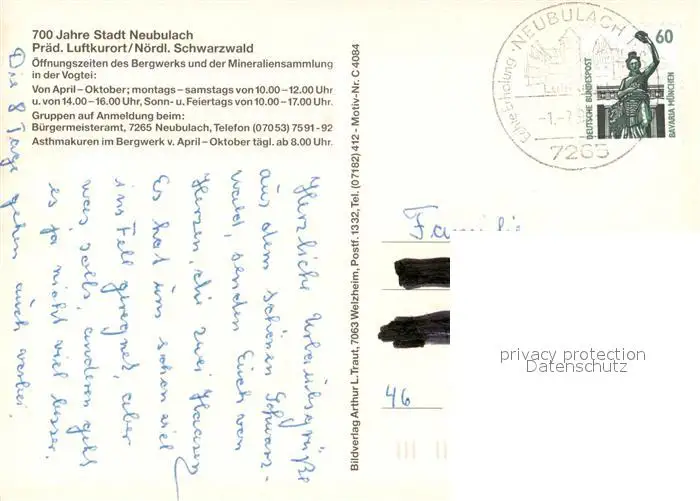 700 Jahre Stadt Neubulach
Präd. Luftkurort/Nördl. Schwarzwald
Öffnungszeiten des Bergwerks und der Mineraliensammlung
in der Vogtei:
Von April – Oktober; montags – samstags von 10.00 – 12.00 Uhr
u. von 14.00 – 16.00 Uhr, Sonn- u. Feiertags von 10.00 – 17.00 Uhr.
Gruppen auf Anmeldung beim:
Bürgermeisteramt, 7265 Neubulach, Telefon (07053) 7591-92
Asthmakuren im Bergwerk v. April – Oktober tägl. ab 8.00 Uhr.
Herzliche Urlaubsgrüße
aus dem schönen Schwarz-
wald, senden Euch von
Herzen, die zwei
Es hat uns schon viel
ins Fell geregnet, aber
was solls, anderen geht
es ja nicht viel besser.
Die 8 Tage gehen auch vorbei.
Bildverlag Arthur L. Traut, 7063 Welzheim, Postf. 1332, Tel. (07182) 412 - Motiv-Nr. C 4084
NEUBULACH
7265
60
DEUTSCHE BUNDESPOST
BAVARIA MÜNCHEN
Familie
46
privacy protection
Datenschutz